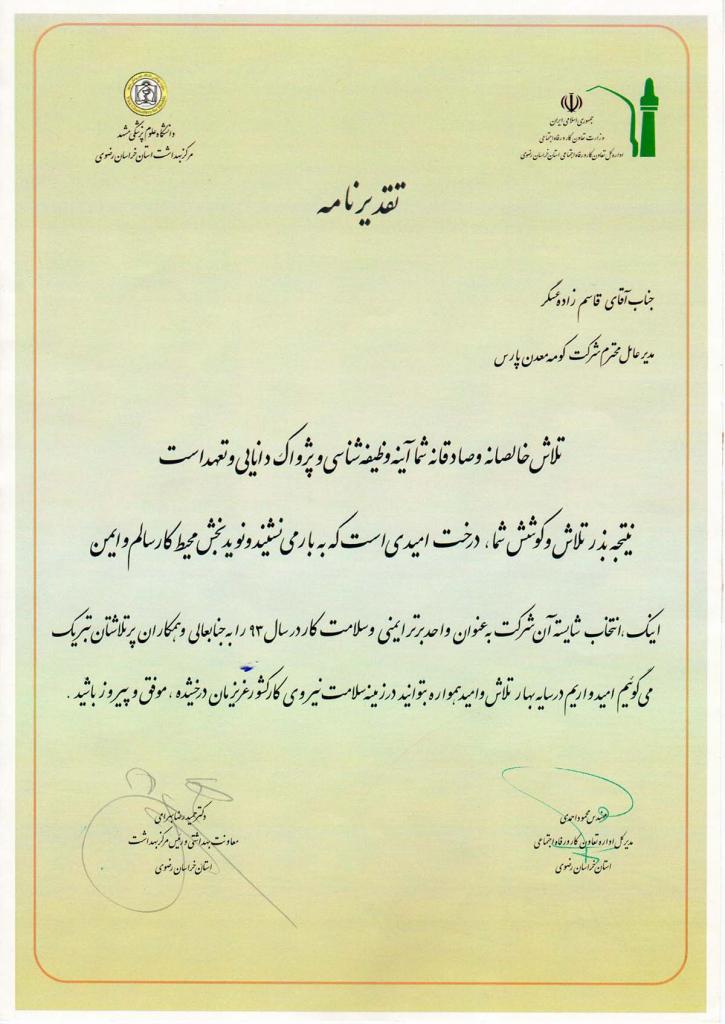 جمهوری اسلامی ایران
وزارت تعاون کار و رفاه اجتماعی
اداره کل تعاون کار و رفاه اجتماعی استان خراسان رضوی
دانشگاه علوم پزشکی مشهد
مرکز بهداشت استان خراسان رضوی
تقدیرنامه
جناب آقای قاسم زاده عسگر
مدیر عامل محترم شرکت کومه معدن پارس
تلاش خالصانه و صادقانه شما آینه وظیفه شناسی و پژواک دانایی و تعهد است
نتیجه بذر تلاش و کوشش شما، درخت امیدی است که به بار می نشیند و نوید بخش محیط کار سالم و ایمن
اینک، انتخاب شایسته آن شرکت به عنوان واحد برتر ایمنی و سلامت کار در سال ۹۳ را به جنابعالی و همکاران پرتلاشتان تبریک
می گوئیم امیدواریم در سایه بهار تلاش و امید همواره بتوانید در زمینه سلامت نیروی کار کشور عزیزمان درخشیده، موفق و پیروز باشید.
مهندس محمود احمدی
مدیرکل اداره تعاون کار و رفاه اجتماعی
استان خراسان رضوی
دکتر حمیدرضا بهرامی
معاونت بهداشتی و رئیس مرکز بهداشت
استان خراسان رضوی